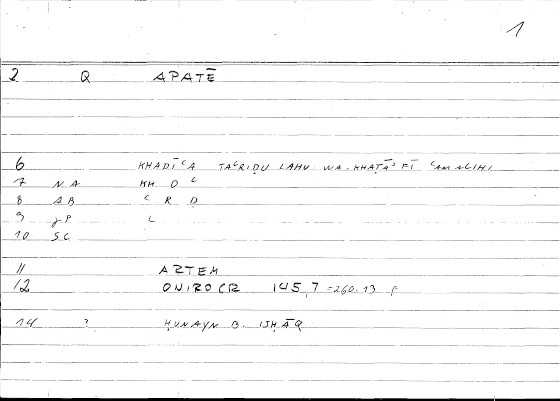 1
2 Q APATĒ
6 KHADĪʿA TAʿRIḌU LAHU WA-KHAṬĀʾ FĪ ʿAMALIHI
7 NA KH D ʿ
8 AB ʿ R Ḍ
9 gP L
10 SC
11 ARTEM
12 ONIROCR 145,7 =260.13 P
14 ? ḤUNAYN B. ISḤĀQ